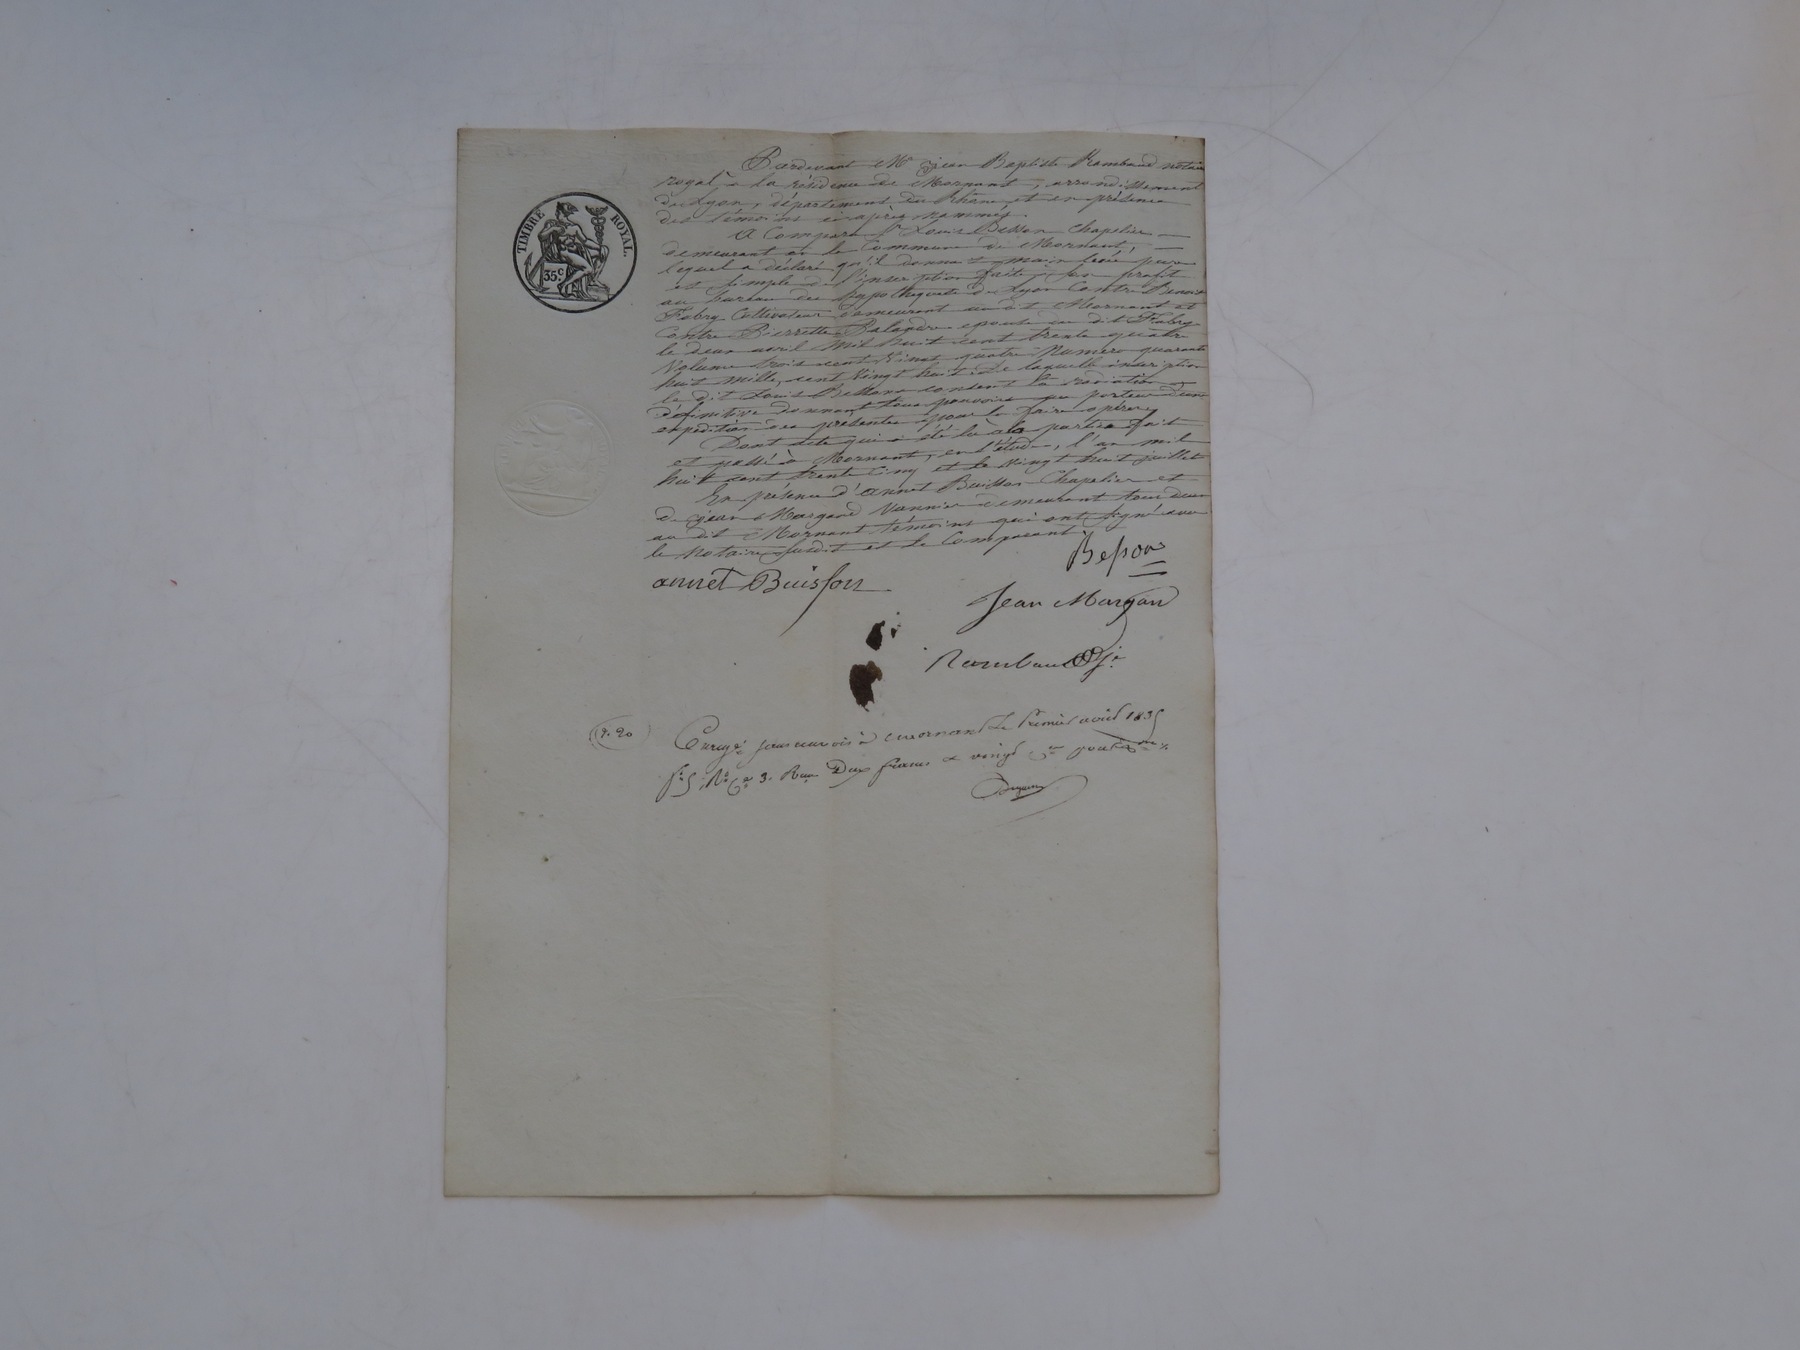 TIMBRE ROYAL.
35 c
Pardevant Me jean Baptiste Rambaud notaire
royal à la résidence de Mornant, arrondissement
de Lyon, département du Rhône et en présence
des témoins ci après nommés.
A Comparu Sr Louis Besson Chapelier
demeurant en la Commune de Mornant,
lequel a déclaré qu'il donne main levée pure
et simple de l'inscription faite à son profit
au bureau des hypothèques de Lyon Contre Benoit
Fabry Cultivateur demeurant au dit Mornant et
Contre Pierrette Balandre epouse du dit Fabry
le deux avril Mil huit cent trente quatre
Volume trois cent Vingt quatre Numéro quarante
huit mille, cent Vingt huit; De laquelle inscription
le dit Louis Besson consent la radiation
définitive donnant tous pouvoirs au porteur d'une
expédition des présentes pour la faire opérer,
Dont acte qui a été lu à la partie fait
et passé à Mornant, en l'étude, l'an mil
huit cent trente Cinq et le Vingt huit juillet
En présence d'annet Buisson Chapelier et
de jean Margand Vannier demeurant tous deux
au dit Mornant témoins qui ont signé avec
le Notaire susdit et le Comparant.
Besson
annet Buisson
Jean Margan
Rambaud
2. 20
Enregé sans renvois à Mornant Le premier août 1835
fo 5 Ro Ce 3. Reçu Deux francs & vingt Cmes pour